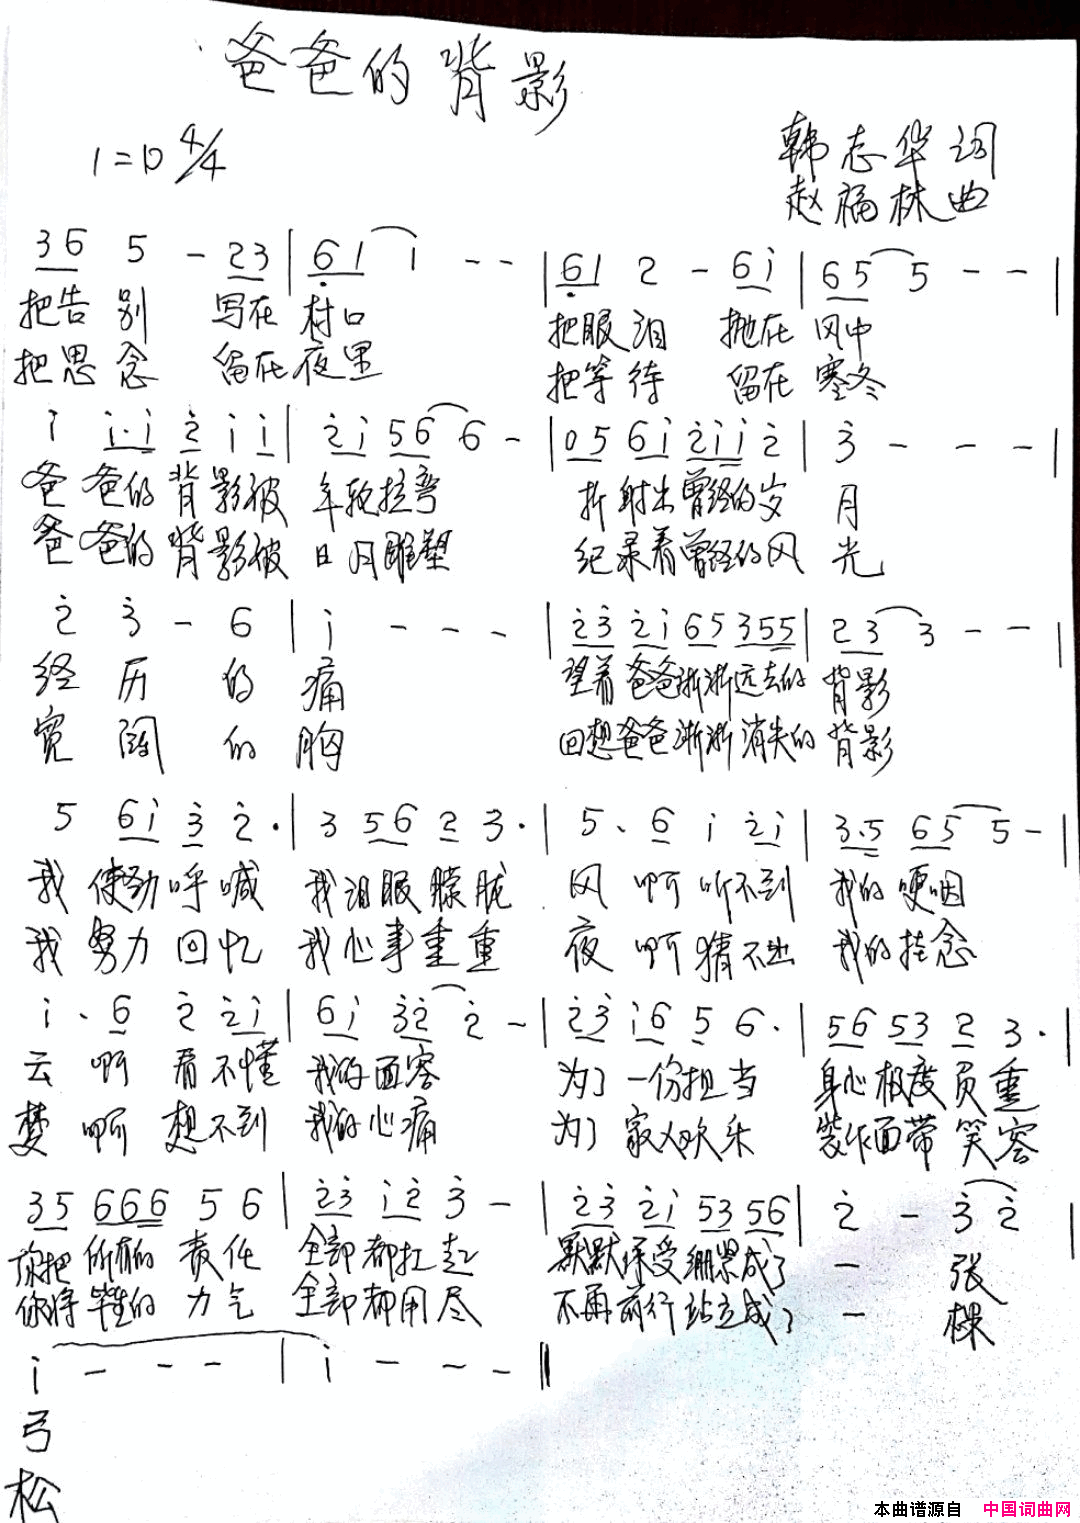 爸爸的背影
1=D 4/4
韩志华词
赵福林曲
36 5 - 23 | 61 i - - | 61 2 - 6i | 65 5 - - |
把告别 写在村口 把眼泪 抛在风中
把思念 留在夜里 把等待 留在寒冬
i i·i 2 i i | 2i 56 6 - | 05 6i 2ii 2 | 3 - - - |
爸爸的背影被年轮拉弯 折射出曾经的岁月
爸爸的背影被日月雕塑 纪录着曾经的风光
2 3 - 6 | i - - - | 23 2i 65 355 | 23 3 - - |
经历的痛 望着爸爸渐渐远去的背影
宽阔的胸 回想爸爸渐渐消失的背影
5 6i 3 2· | 3 56 2 3· | 5· 6 i 2i | 3·5 65 5 - |
我使劲呼喊 我泪眼朦胧 风啊听不到 我的哽咽
我努力回忆 我心事重重 夜啊猜不出 我的挂念
i· 6 2 2i | 6i 32 2 - | 23 i6 5 6· | 56 53 2 3· |
云啊看不懂 我的面容 为了一份担当 身心极度负重
梦啊想不到 我的心痛 为了家人欢乐 装作面带笑容
35 666 5 6 | 23 i2 3 - | 23 2i 53 56 | 2 - 32 |
你把所有的责任 全部都扛起 默默承受绷紧成了 一 张
你将毕生的力气 全部都用尽 不再前行站立成了 一 棵
i - - - | i - - - ‖
弓
松
本曲谱源自 中国词曲网